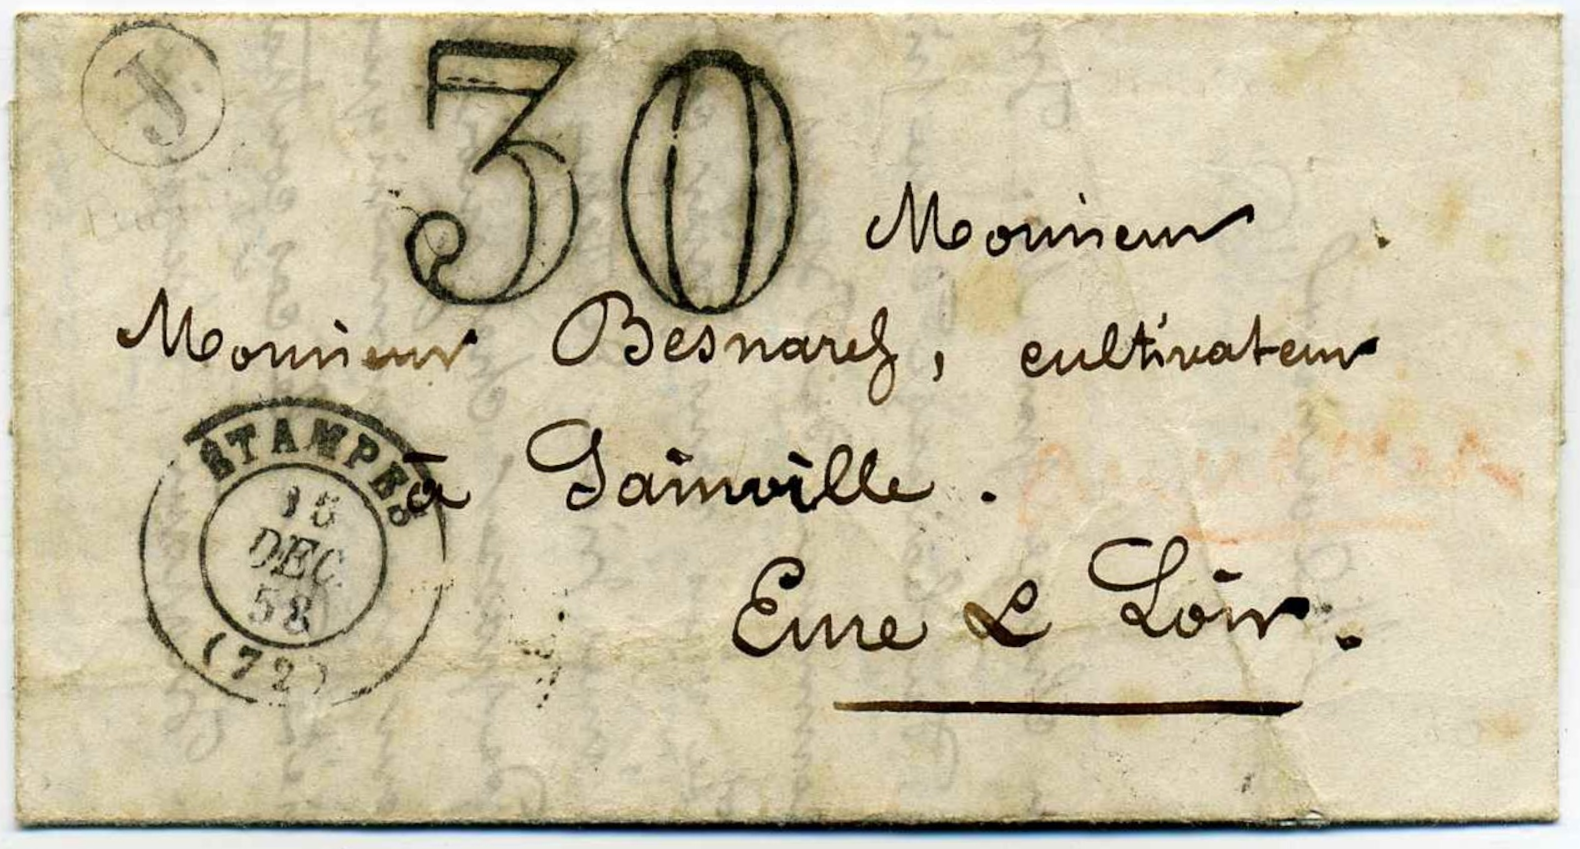 J
30
Monsieur
Monsieur Besnard, cultivateur
à Gainville.
Eure & Loir.
ETAMPES
15
DEC
58
(72)